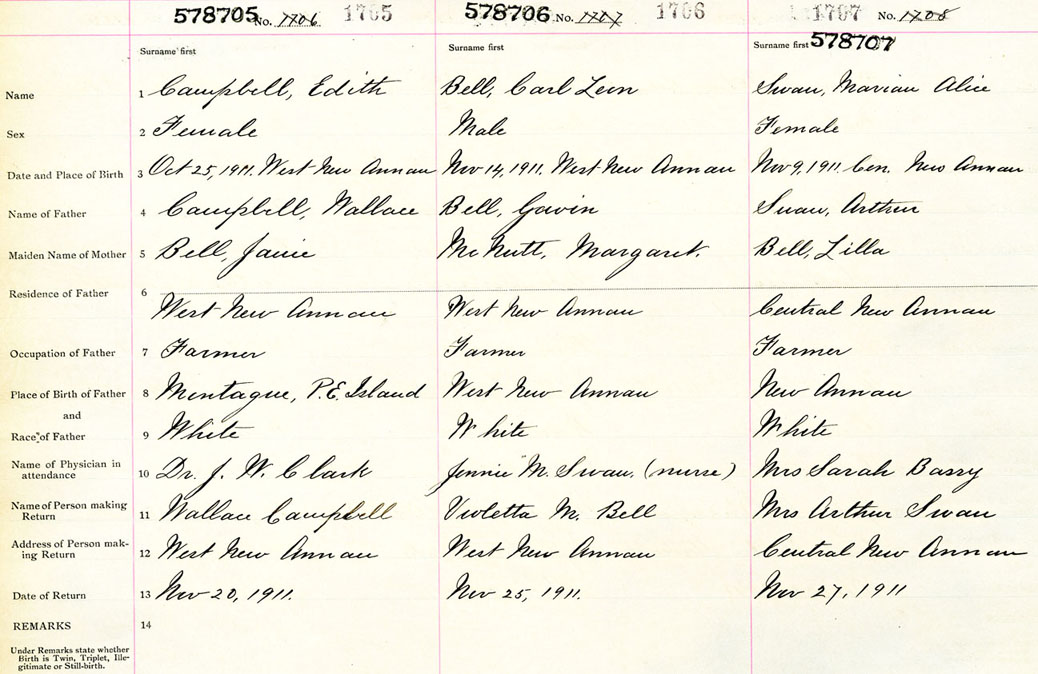 578705 No. 1706 1705 578706 No. 1707 1706 1707 No. 1708
Surname first Surname first Surname first 578707
Name 1 Campbell, Edith Bell, Carl Leon Swan, Marian Alice
Sex 2 Female Male Female
Date and Place of Birth 3 Oct 25, 1911. West New Annan Nov 14, 1911. West New Annan Nov 9, 1911. Cen. New Annan
Name of Father 4 Campbell, Wallace Bell, Gavin Swan, Arthur
Maiden Name of Mother 5 Bell, Janie McNutt, Margaret. Bell, Lilla
Residence of Father 6
West New Annan West New Annan Central New Annan
Occupation of Father 7 Farmer Farmer Farmer
Place of Birth of Father 8 Montague, P.E. Island West New Annan New Annan
and
Race of Father 9 White White White
Name of Physician in
attendance 10 Dr. J. W. Clark Jennie M. Swan. (nurse) Mrs Sarah Barry
Name of Person making
Return 11 Wallace Campbell Violetta M. Bell Mrs Arthur Swan
Address of Person mak-
ing Return 12 West New Annan West New Annan Central New Annan
Date of Return 13 Nov 20, 1911. Nov 25, 1911. Nov 27, 1911
REMARKS 14
Under Remarks state whether
Birth is Twin, Triplet, Ille-
gitimate or Still-birth.